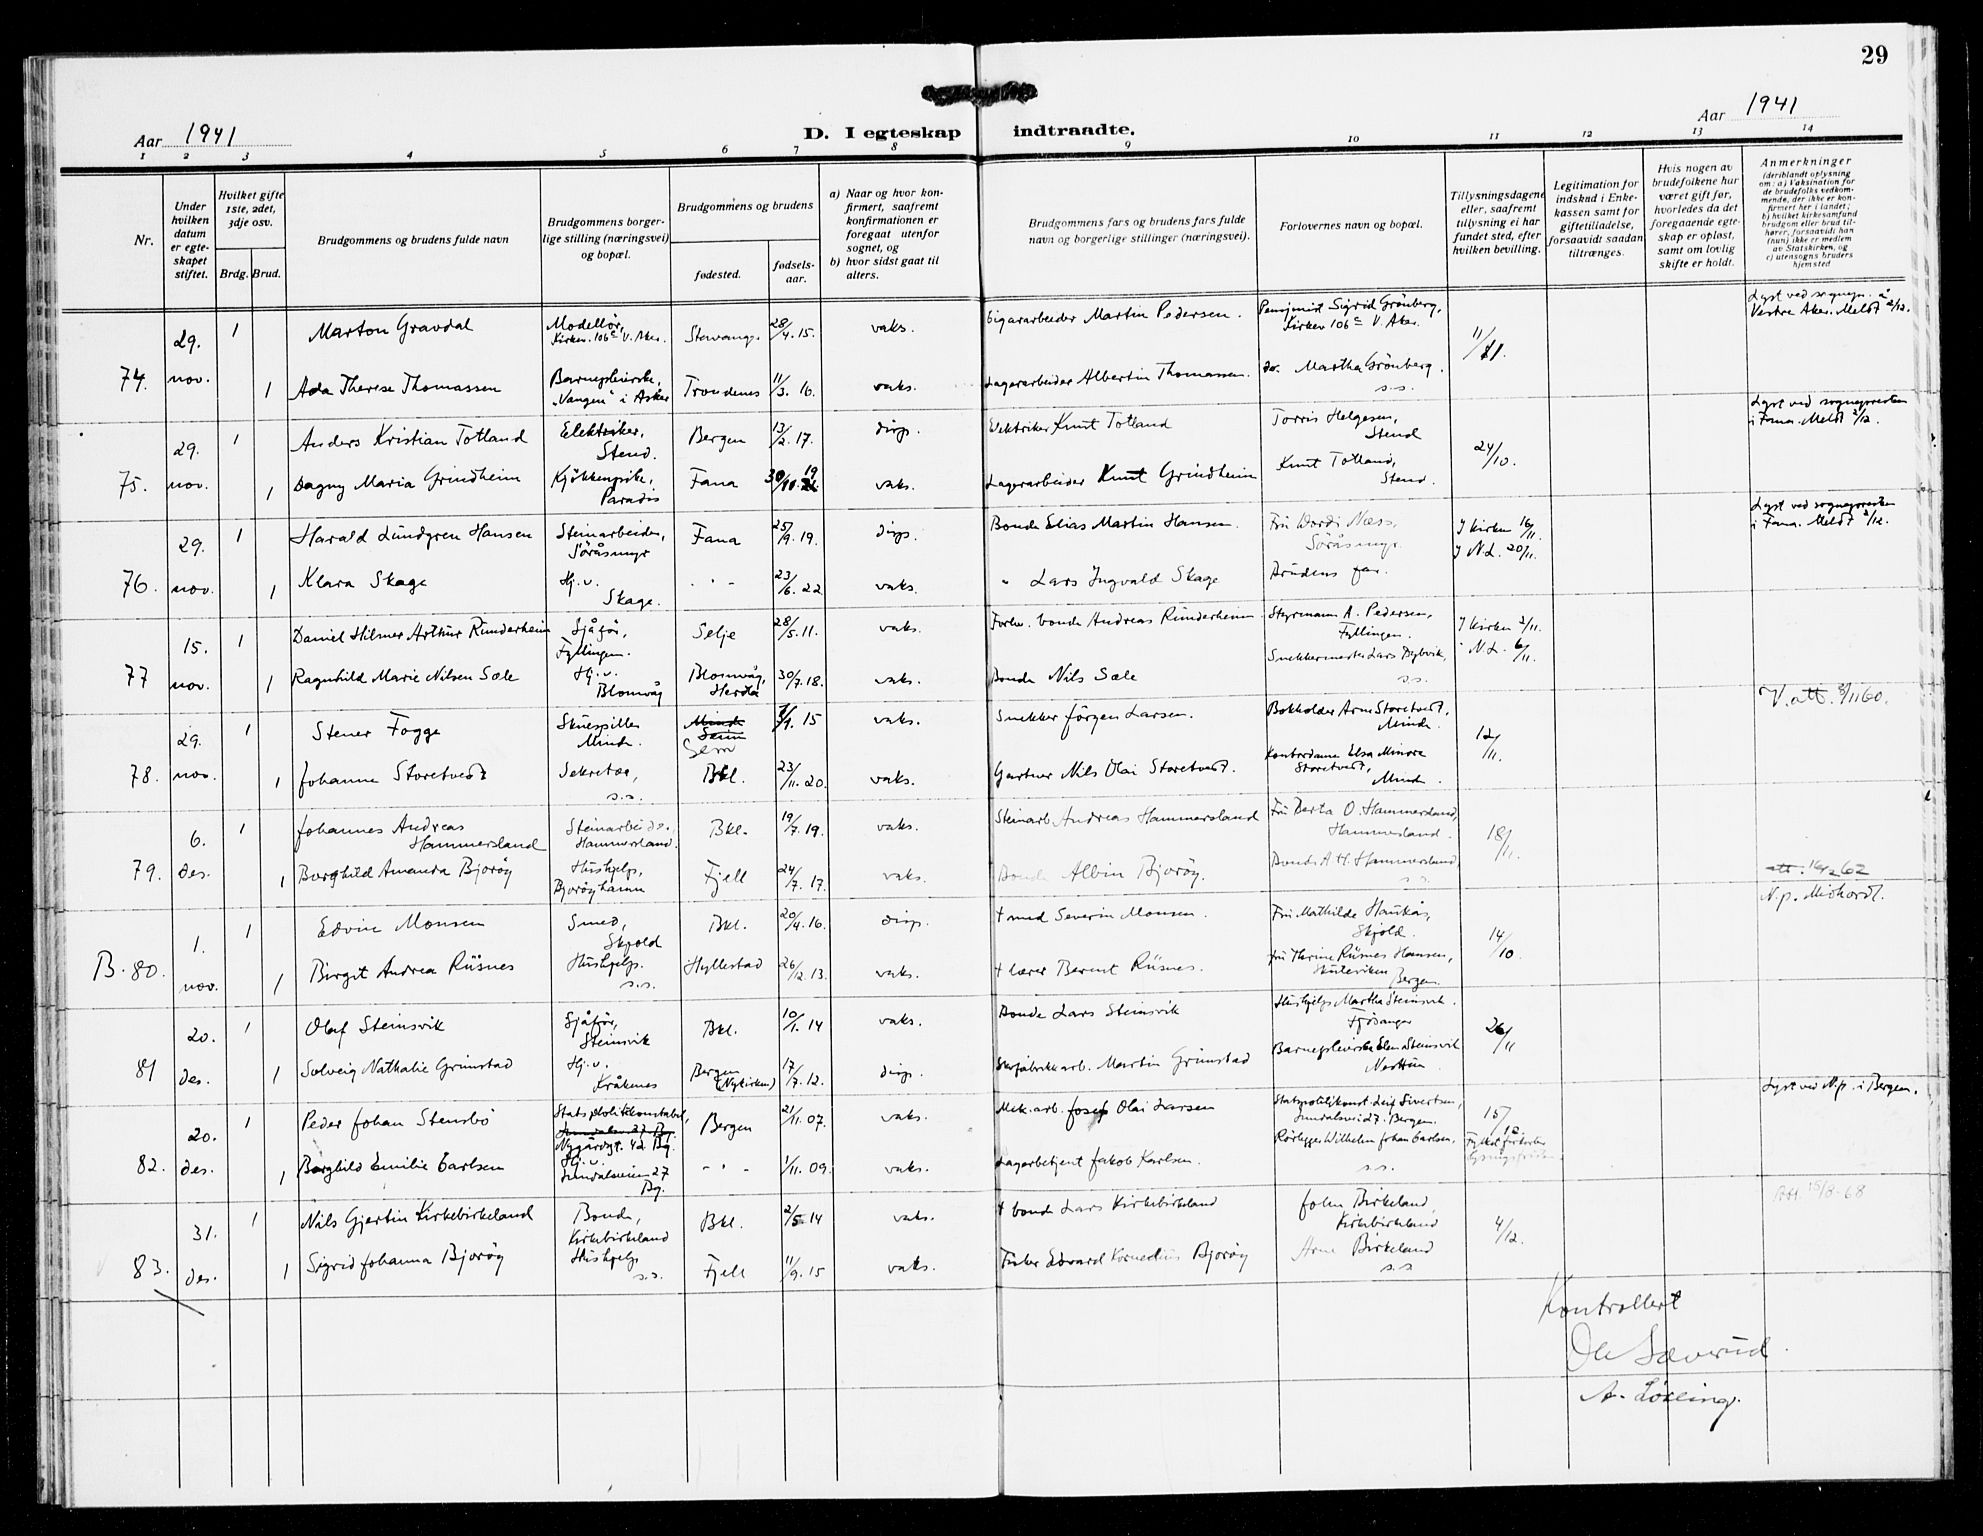 29
Aar 1941
D. I egteskap indtraadte.
Aar 1941
1 2 3 4 5 6 7 8 9 10 11 12 13 14
Nr.
Under hvilken datum er egteskapet stiftet.
Hvilket gifte 1ste, 2det, 3dje osv.
Brdg. Brud.
Brudgommens og brudens fulde navn
Brudgommens borgerlige stilling (næringsvei) og bopæl.
Brudgommens og brudens
fødested.
fødselsaar.
a) Naar og hvor konfirmert, saafremt konfirmationen er foregaat utenfor sognet, og
b) hvor sidst gaat til alters.
Brudgommens fars og brudens fars fulde navn og borgerlige stillinger (næringsvei).
Forlovernes navn og bopæl.
Tillysningsdagene eller, saafremt tillysning ei har fundet sted, efter hvilken bevilling.
Legitimation for indskud i Enkekassen samt for giftetilladelse, forsaavidt saadan tiltrænges.
Hvis nogen av brudefolkene har været gift før, hvorledes da det foregaaende egteskap er opløst, samt om lovlig skifte er holdt.
Anmerkninger (deriblandt oplysning om: a) Vaksination for de brudefolks vedkommende, der ikke er konfirmert her i landet; b) hvilket kirkesamfund brudgom eller brud tilhører, forsaavidt han (hun) ikke er medlem av Statskirken, og c) utensogns bruders hjemsted
74. 29. nov. 1 Marton Gravdal Modellør, Kirkev. 106c V. Aker. Stavanger 28/4. 15. vaks. Sigararbeider Martin Pedersen. Sigrid Grønberg, Kirkev 106c V. Aker. 11/11. Lyst ved sognepr. i Vestre Aker. Meldt 2/12.
1 Ada Therese Thomassen Barnepleierske, "Vangen" i Asker Trondenes 11/3. 16. vaks. Lagerarbeider Albertin Thomassen. do. Martha Grønberg. s.s.
75. 29. nov. 1 Anders Kristian Totland Elektriker, Stend. Bergen 13/2. 17. disp. Elektriker Knut Totland Torris Helgesen, Stend 24/10. Lyst ved sognepresten i Fana. Meldt 2/12.
1 Dagny Maria Grindheim Kjøkkenpike, Paradis Fana vaks. Lagerarbeider Knut Grindheim Knut Totland, Stend.
76. 29. nov. 1 Harald Lundgren Hansen Steinarbeider, Søråsmyr Fana 25/9. 19. disp. Bonde Elias Martin Hansen. Fru Dordi Næss, Søråsmyr. I kirken 16/11. I N.L. 20/11. Lyst ved sognepresten i Fana. Meldt 2/12.
1 Klara Skage Hj.v. Skage. - " - 23/6. 22 vaks. " Lars Ingvald Skage Brudens far.
77 15. nov. 1 Daniel Hilmer Arthur Runderheim Sjåfør, Fyllingen. Selje 28/5. 11. vaks. Forhv. bonde Andreas Runderheim Styrmann A. Pedersen, Fyllingen. I kirken 2/11. " N.L. 6/11.
1 Ragnhild Marie Nilsen Sæle Hj.v. Blomvåg Blomvåg, Herdla 30/7. 18. vaks. Bonde Nils Sæle Snekkermester Lars Dybvik, s.s.
78. 29. nov. 1 Stener Fogge Skuespiller Minde. Sem 15 vaks. Snekker Jørgen Larsen. Bokholder Arne Storetvedt, Minde. 12/11. V. att. 8/11 60.
1 Johanne Storetvedt Sekretær, s.s. Bkl. 23/11. 20. vaks. Gartner Nils Olai Storetvedt. Kontordame Elsa Minore Storetvedt, Minde.
79. 6. des. 1 Johannes Andreas Hammersland Steinarbeider, Hammersland. Bkl. 19/7. 19. vaks. Steinarb. Andreas Hammersland Fru Berta O. Hammersland, Hammersland. 18/11.
1 Borghild Amanda Bjorøy Hushjelp, Bjorøyhamn Fjell 24/7. 17. vaks. Bonde Albin Bjorøy. Bonde A. H. Hammersland, s.s. att. 62
B. 80. 1. nov. 1 Edvin Monsen Smed, Skjold Bkl. 20/4. 16. disp. † smed Severin Monsen. Fru Mathilde Haukås, Skjold. 14/10. N.p. Midhordl.
1 Birgit Andrea Risnes Hushjelp. s.s. Hyllestad 26/12. 13. vaks. † lærer Bernt Risnes. Fru Thrine Risnes Hansen, Skuteviken Bergen.
81 20. des. 1 Olaf Steinsvik Sjåfør, Steinsvik Bkl. 10/1. 14 vaks. Bonde Lars Steinsvik Hushjelp Martha Steinsvik. Fjøsanger 26/11
1 Solveig Nathalie Grimstad Hj.v. Kråkenes Bergen (Nykirken) 17/7. 12. disp. Skofabrikkarb. Martin Grimstad Barnepleierske Elen Steinsvik Nesttun.
82. 20. des. 1 Peder Johan Stensbø Statspolitikonstabel, Nygårdsgt. 42 Bg. Bergen 21/11. 07. vaks. Mek. arb. Josef Olai Larsen Statspolitikonst. Leif Sivertsen, Lundalsvei 27. Bergen. 15/12. Lyst ved N.p. i Bergen.
1 Borghild Emilie Carlsen Hj.v. Lundalsveien 27 Bg. - " - 1/11. 09. vaks. Lagerbetjent Jakob Karlsen. Rørlegger Wilhelm Johan Carlsen, s.s.
83. 31. des. 1 Nils Gjertin Kirkebirkeland Bonde, Kirkebirkeland Bkl. 2/5. 14 vaks. † bonde Lars Kirkebirkeland John Birkeland, Kirkebirkeland 4/12. Att. 15/8-68
1 Sigrid Johanna Bjorøy Hushjelp s.s. Fjell 11/9. 15 vaks. Fisker Edvard Kornelius Bjorøy Arne Birkeland s.s
Kontrollert
Ole Sæverud.
A. Løkling.